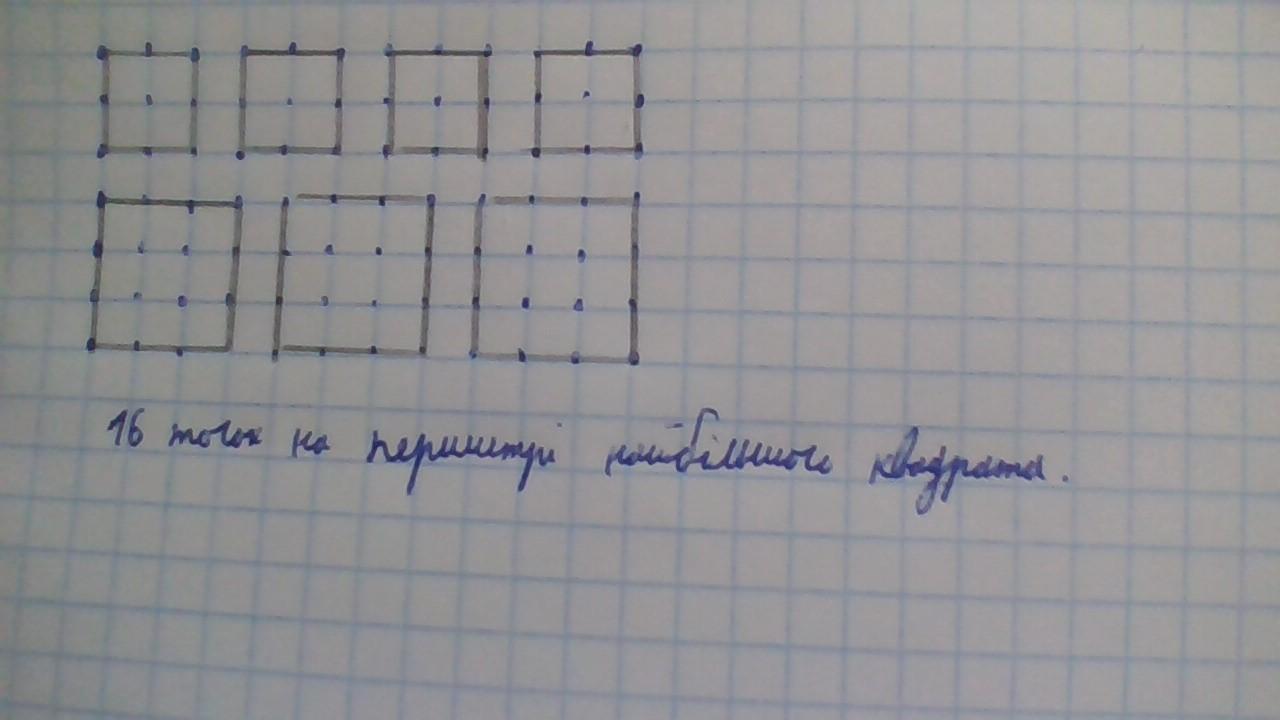 16 точок на периметрі найбільшого квадрата.